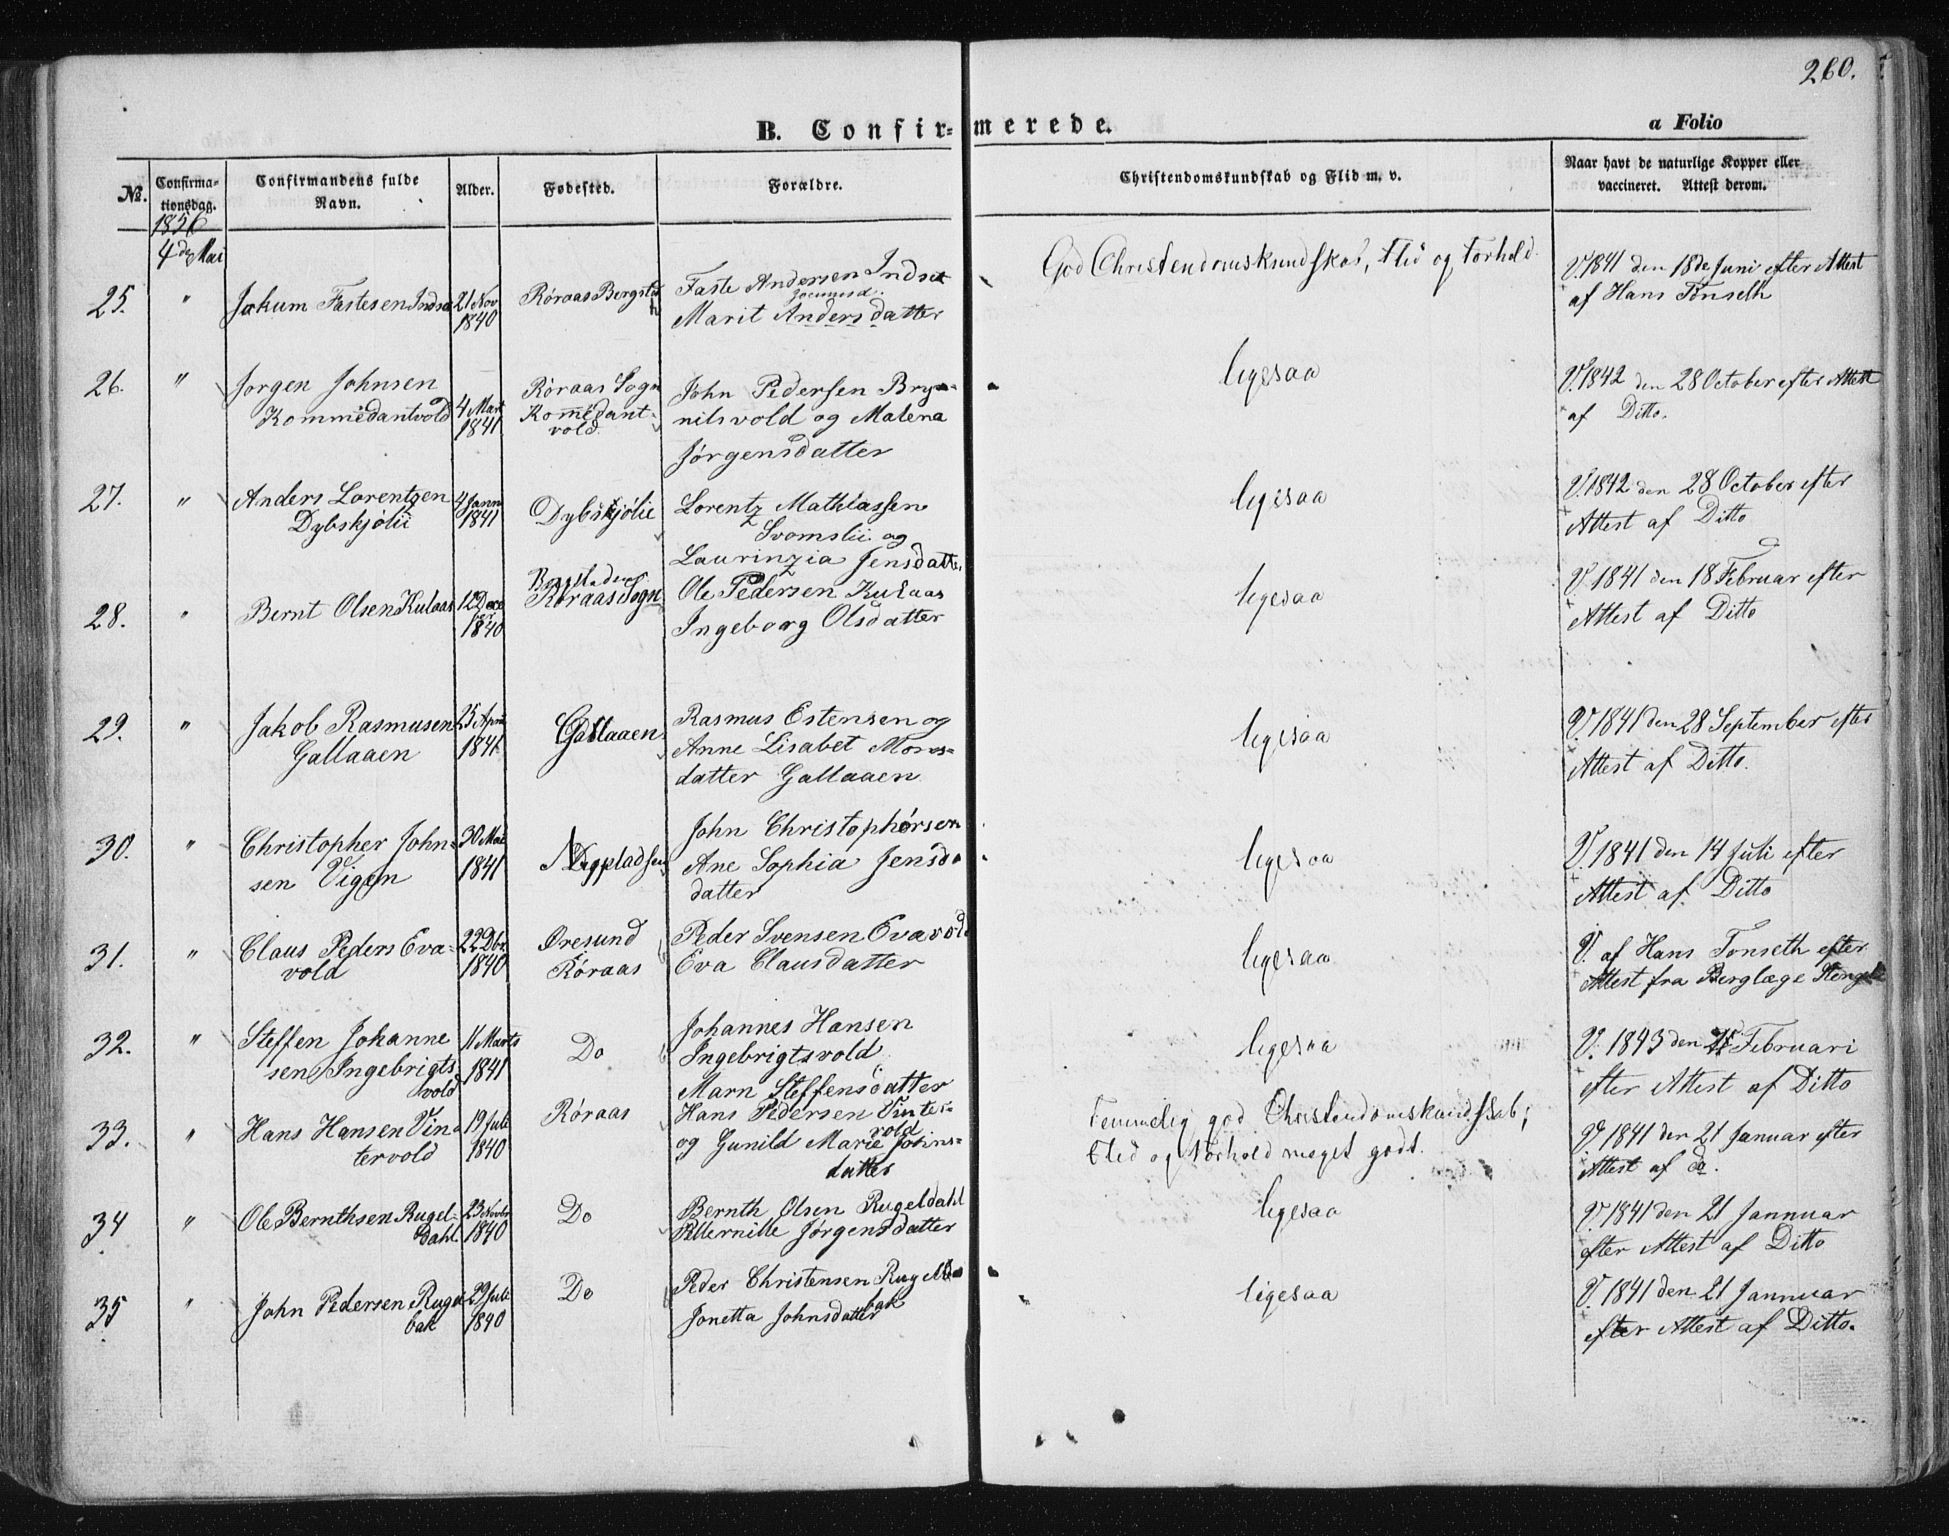 260.
B. Confirmerede.
a Folio
No.
Confirmationsdag.
Confirmandens fulde Navn.
Alder.
Fødested.
Forældre.
Christendomskundskab og Flid m. v.
Naar havt de naturlige Kopper eller vaccineret. Attest derom.
1856
4de Mai
25. " Jokum Fastesen Indset
21 Nov
1840
Röraas Bergstad
Faste Andersen Indset
Marit Andersdatter
God Christendomskundskab, Flid og Forhold
V. 1841 den 18de Juni efter Attest
af Hans Tönseth
26. " Jorgen Johnsen
Kommedantvold
4 Mart
1841
Röraas Sogn
Kommedant-
vold.
John Pedersen Bry-
nilsvold og Malena
Jörgensdatter
ligesaa
V. 1842 den 28 October efter Attest
af Ditto.
27. " Anders Lorentzen
Dybskjölii
4 Jann
1841
Dybskjölie
Lorentz Mathiassen
Svomslii og
Laurinzia Jensdatter
ligesaa
V. 1842 den 28 October efter
Attest af Ditto
28. " Bernt Olsen Kulaas
12 Dece
1840
Bergstaden
Röraas Sogn
Ole Pedersen Kulaas
Ingeborg Olsdatter
ligesaa
V. 1841 den 18 Februar efter
Attest af Ditto
29. " Jakob Rasmusen
Gallaaen
25 April
1841
Gallaaen
Rasmus Estensen og
Anne Lisabet Mons-
datter Gallaaen
ligesaa
V. 1841 den 28 September efter
Attest af Ditto.
30. " Christopher John-
sen Vigen
30 Mai
1841
Nypladsen
John Christophörsen
Ane Sophia Jens
datter
ligesaa
V. 1841 den 14 Juli efter
Attest af Ditto
31. " Claus Peders Eva-
vold
22 Dbr
1840
Øresund
Röraas
Peder Svensen Evavold
Eva Clausdatter
ligesaa
V. af Hans Tonseth efter
Attest fra Berglæge Stengel
32. " Steffen Johanne
sen Ingebrigts
vold
11 Marts
1841
Do
Johannes Hansen
Ingebrigtsvold
Marn Steffensdatter
ligesaa
V. 1843 den Februari
efter Attest af Ditto
33. " Hans Hansen Vin-
tervold
19 Juli
1840
Röraas
Hans Pedersen Vinter-
vold
og Gunild Marie Johns-
datter
Temmelig god Christendomskundskab,
Flid og Forhold meget godt.
V. 1841 den 21 Januar efter
Attest af do.
34 " Ole Bernthsen Rugel-
dahl.
23 Novbr
1840
Do
Bernth Olsen Rugeldahl
Pellernille Jörgensdatter
ligesaa
V. 1841 den 21 Jannuar
efter Attest af Ditto
35 " John Pedersen Rugel
bak
29 Juli
1840
Do
Peder Christensen Rugel
bak
Jonetta Johnsdatter
ligesaa
V. 1841 den 21 Jannuar
efter Attest af Ditto.